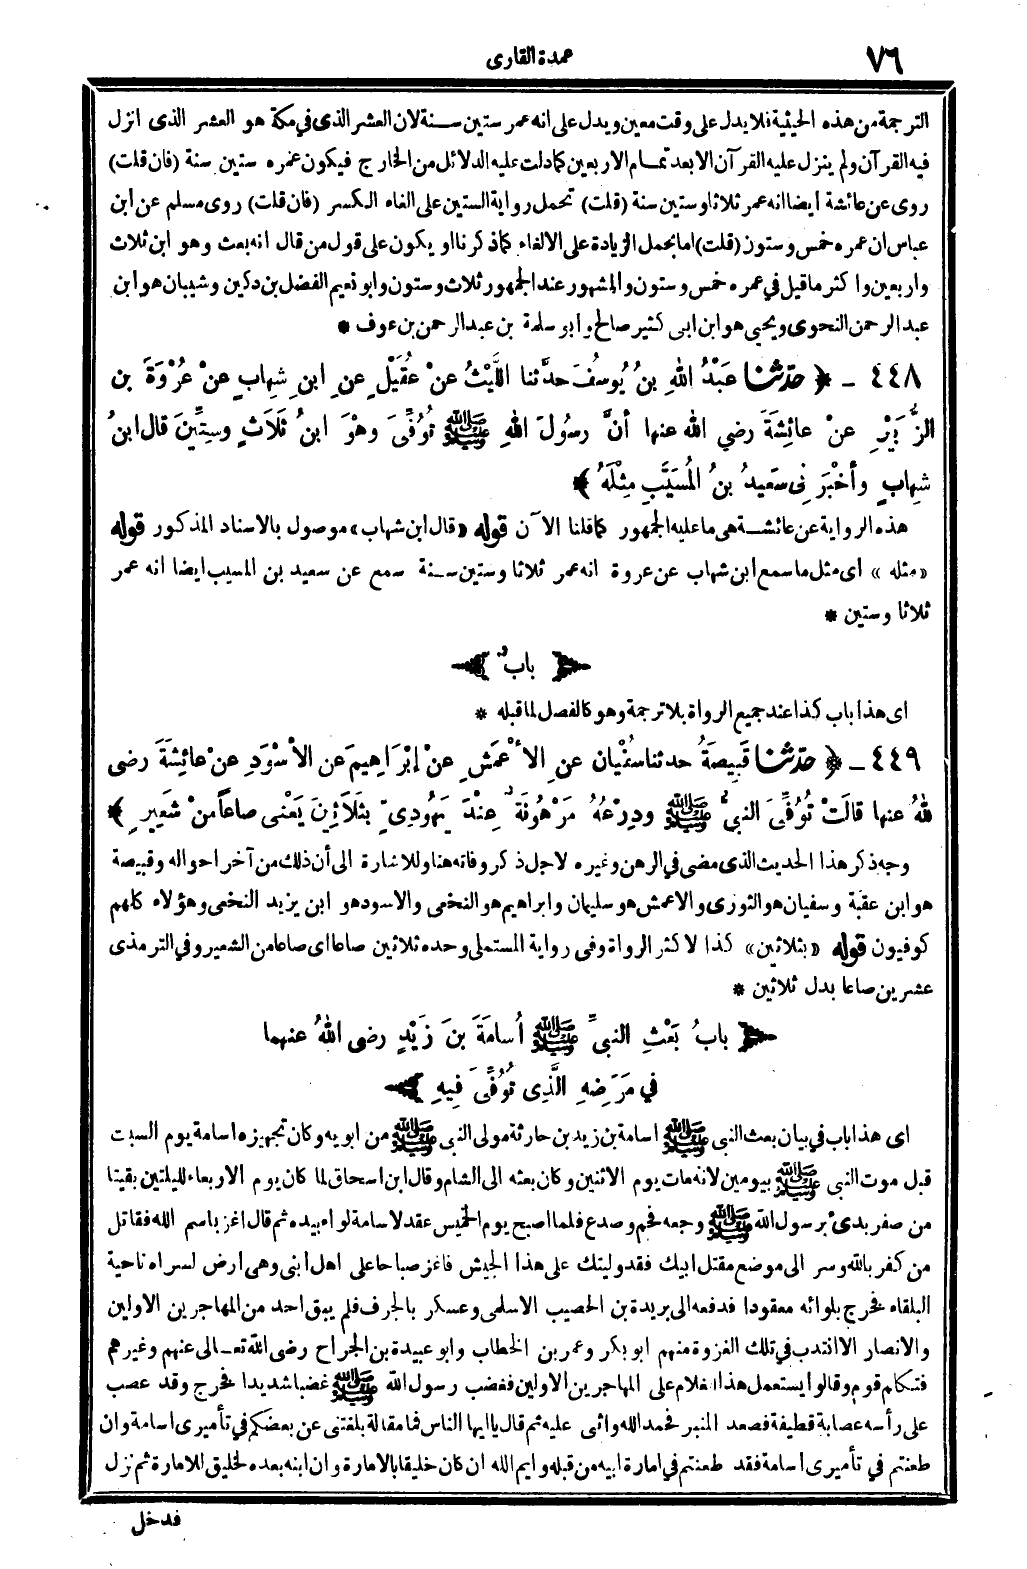 ٧٦
عمدة القارى
الترجمة من هذه الحيثية فلا يدل على وقت معين ويدل على انه عمر ستين سنة لان العشر الذى فى مكة هو العشر الذى انزل
فيه القرآن ولم ينزل عليه القرآن الا بعد تمام الاربعين كما دلت عليه الدلائل من الخارج فيكون عمره ستين سنة (فان قلت)
روى عن عائشة ايضا انه عمر ثلاثا وستين سنة (قلت) تحمل رواية الستين على الغاء الكسر (فان قلت) روى مسلم عن ابن
عباس ان عمره خمس وستون (قلت) اما يحمل الزيادة على الالغاء كما ذكرنا او يكون على قول من قال انه بعث وهو ابن ثلاث
واربعين واكثر ما قيل فى عمره خمس وستون والمشهور عند الجمهور ثلاث وستون وابو نعيم الفضل بن دكين وشيبان هو ابن
عبد الرحمن النحوى ويحيى هو ابن ابى كثير صالح وابو سلمة بن عبد الرحمن بن عوف *
٤٤٨ - ﴿ حدّثنا عَبْدُ اللهِ بنُ يُوسُفَ حدَّثنا اللَّيْثُ عنْ عُقَيْلٍ عنِ ابنِ شِهابٍ عنْ عُرْوَةَ بنِ
الزُّبَيْرِ عنْ عائِشَةَ رضي الله عنها أنَّ رسُولَ اللهِ ﷺ تُوُفِّىَ وهْوَ ابنُ ثَلَاثٍ وسِتِّينَ قال ابنُ
شِهابٍ وأخْبَرَنِى سَعِيدُ بنُ المُسَيَّبِ مِثْلَهُ ﴾
هذه الرواية عن عائشة هى ما عليه الجمهور كما قلنا الآن قوله «قال ابن شهاب» موصول بالاسناد المذكور قوله
«مثله» اى مثل ما سمع ابن شهاب عن عروة انه عمر ثلاثا وستين سنة سمع عن سعيد بن المسيب ايضا انه عمر
ثلاثا وستين *
﴿ بابٌ ﴾
اى هذا باب كذا عند جميع الرواة بلا ترجمة وهو كالفصل لما قبله *
٤٤٩ - ﴿ حدّثنا قَبِيصَةُ حدثنا سُفْيان عنِ الأعْمَشِ عنْ إبْرَاهِيمَ عنِ الأسْوَدِ عنْ عائِشَةَ رضى
اللهُ عنها قالَتْ تُوُفِّىَ النبىُّ ﷺ ودِرْعُهُ مَرْهُونَةٌ عِنْدَ يَهُودِىٍّ بِثَلَاثِينَ يَعْنِى صاعاً مِنْ شَعِيرٍ ﴾
وجه ذكر هذا الحديث الذى مضى فى الرهن وغيره لاجل ذكر وفاته هنا وللاشارة الى أن ذلك من آخر احواله وقبيصة
هو ابن عقبة وسفيان هو الثورى والاعمش هو سليمان وابراهيم هو النخعى والاسود هو ابن يزيد النخعى وهؤلاء كلهم
كوفيون قوله «بثلاثين» كذا لاكثر الرواة وفى رواية المستملى وحده ثلاثين صاعا اى صاعا من الشعير وفى الترمذى
عشرين صاعا بدل ثلاثين *
﴿ بابُ بَعْثِ النبىِّ ﷺ أُسامَةَ بنَ زَيْدٍ رضى اللهُ عنهما
فى مَرَضِهِ الَّذِى تُوُفِّىَ فِيهِ ﴾
اى هذا باب فى بيان بعث النبى ﷺ اسامة بن زيد بن حارثة مولى النبى ﷺ من ابويه وكان تجهيزه اسامة يوم السبت
قبل موت النبى ﷺ بيومين لانه مات يوم الاثنين وكان بعثه الى الشام وقال ابن اسحاق لما كان يوم الاربعاء لليلتين بقيتا
من صفر بدئ برسول الله ﷺ وجعه فحم وصدع فلما اصبح يوم الخميس عقد لاسامة لواء بيده ثم قال اغز باسم الله فقاتل
من كفر بالله وسر الى موضع مقتل ابيك فقد وليتك على هذا الجيش فاغز صباحا على اهل ابنى وهى ارض لسراه ناحية
البلقاء فخرج بلوائه معقودا فدفعه الى بريدة بن الحصيب الاسلمى وعسكر بالجرف فلم يبق احد من المهاجرين الاولين
والانصار الا انتدب فى تلك الغزوة منهم ابو بكر وعمر بن الخطاب وابو عبيدة بن الجراح رضى الله تعالى عنهم وغيرهم
فتكلم قوم وقالوا يستعمل هذا الغلام على المهاجرين الاولين فغضب رسول الله ﷺ غضبا شديدا فخرج وقد عصب
على رأسه عصابة قطيفة فصعد المنبر فحمد الله واثنى عليه ثم قال يا ايها الناس فما مقالة بلغتنى عن بعضكم فى تأميرى اسامة وان
طعنتم فى تأميرى اسامة فقد طعنتم فى امارة ابيه من قبله وايم الله ان كان خليقا بالامارة وان ابنه بعده لخليق للامارة ثم نزل
فدخل